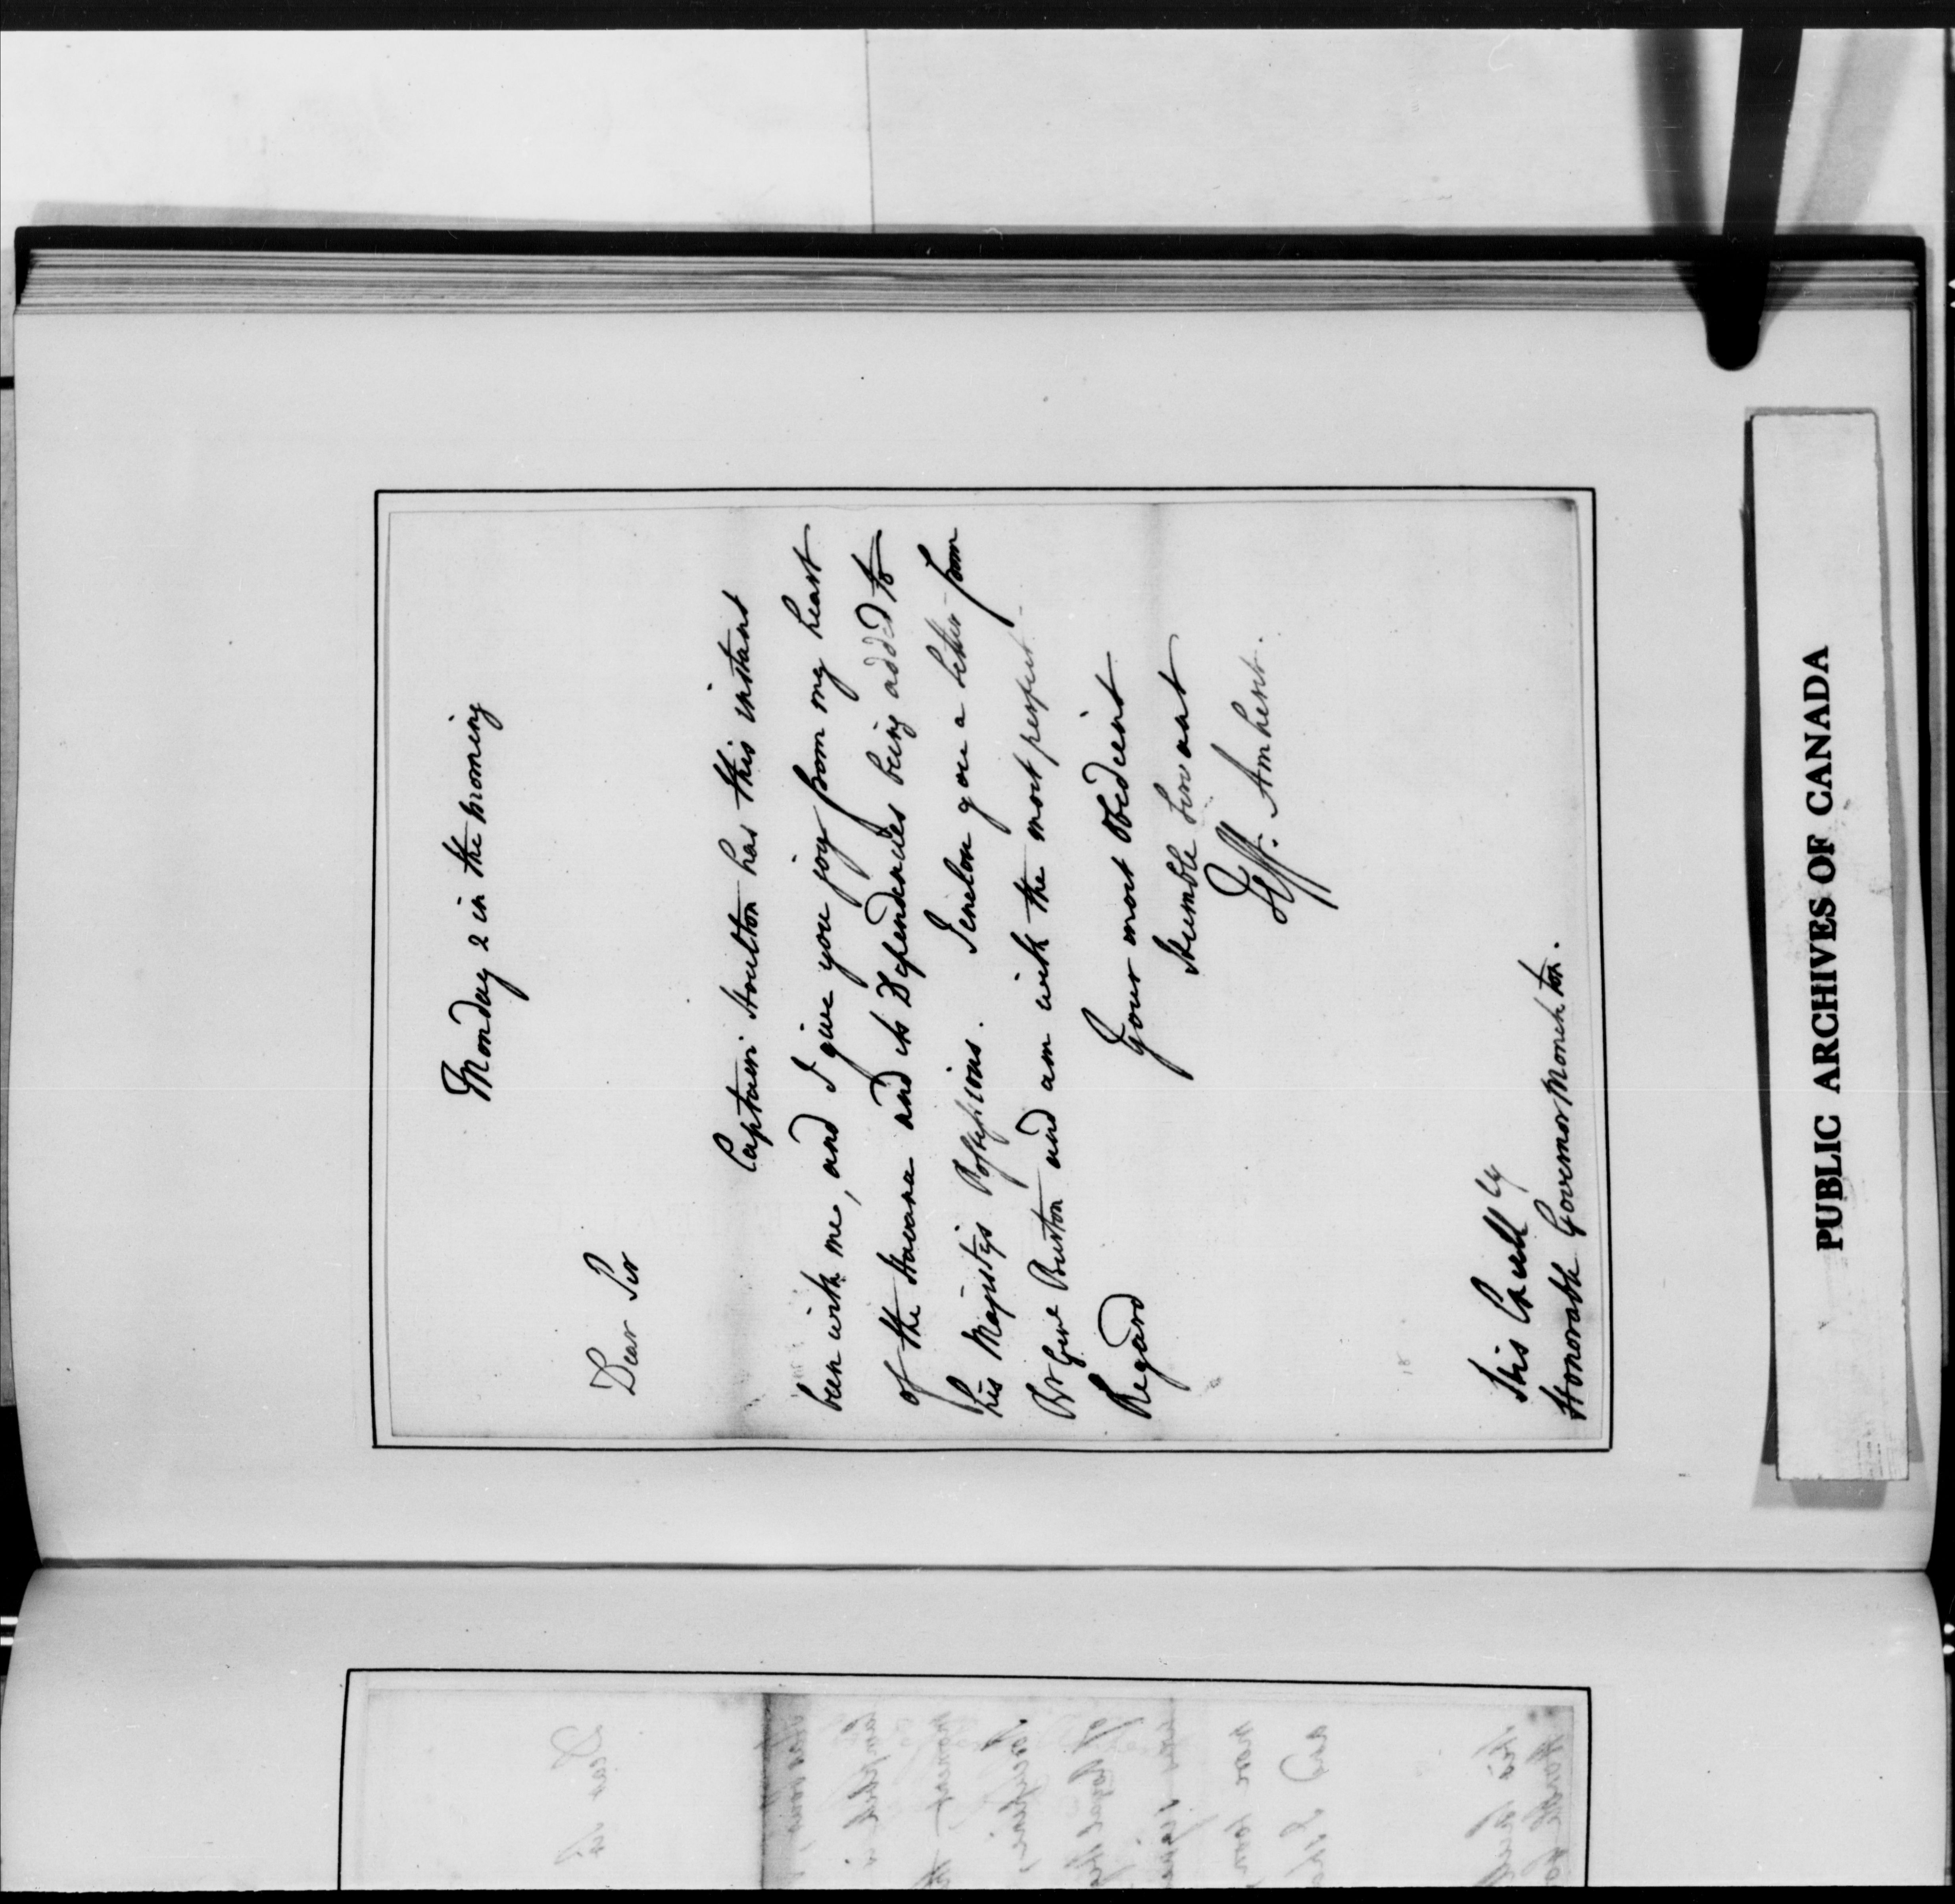 Monday 2 in the morning
Dear Sir
Captain Moulton has this instant
been with me, and I give you joy from my heart
of the Havana and its Dependencies being added to
his Majestys Possessions. I enclose you a letter from
Br Genl Burton and am with the most perfect
Regard
Your most Obedient
Humble Servant
Jeff: Amherst.
His Excelly
Honorable Governor Monckton.
PUBLIC ARCHIVES OF CANADA